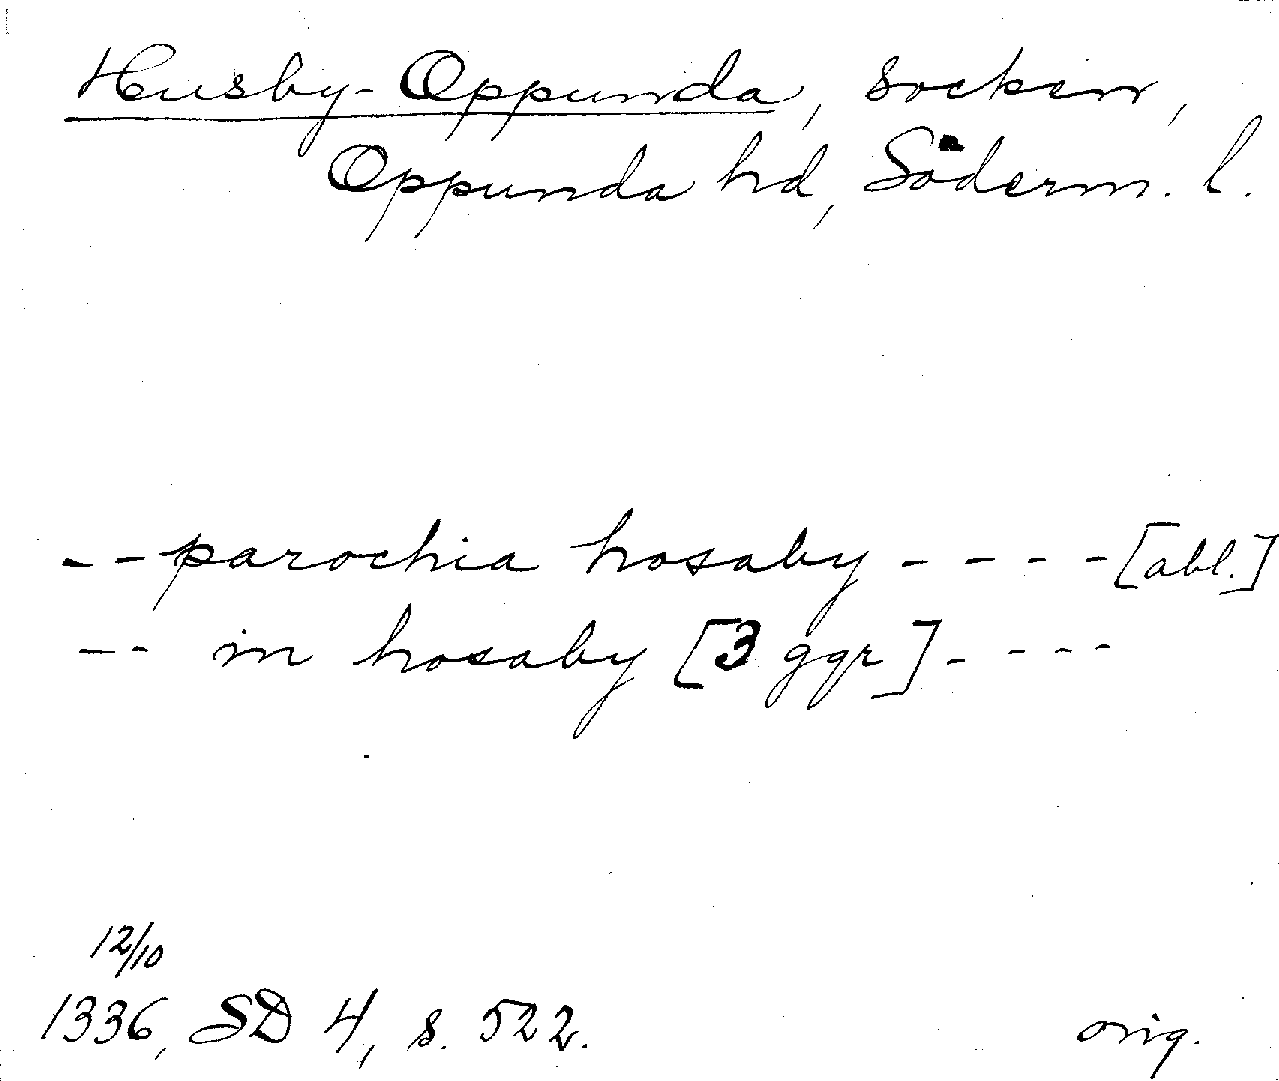 Husby-Oppunda, socken,
Oppunda hd, Söderm. l.
-- parochia hosaby - - - - [abl.]
-- in hosaby [3 ggr] - - - -
12/10
1336, SD 4, s. 522. orig.